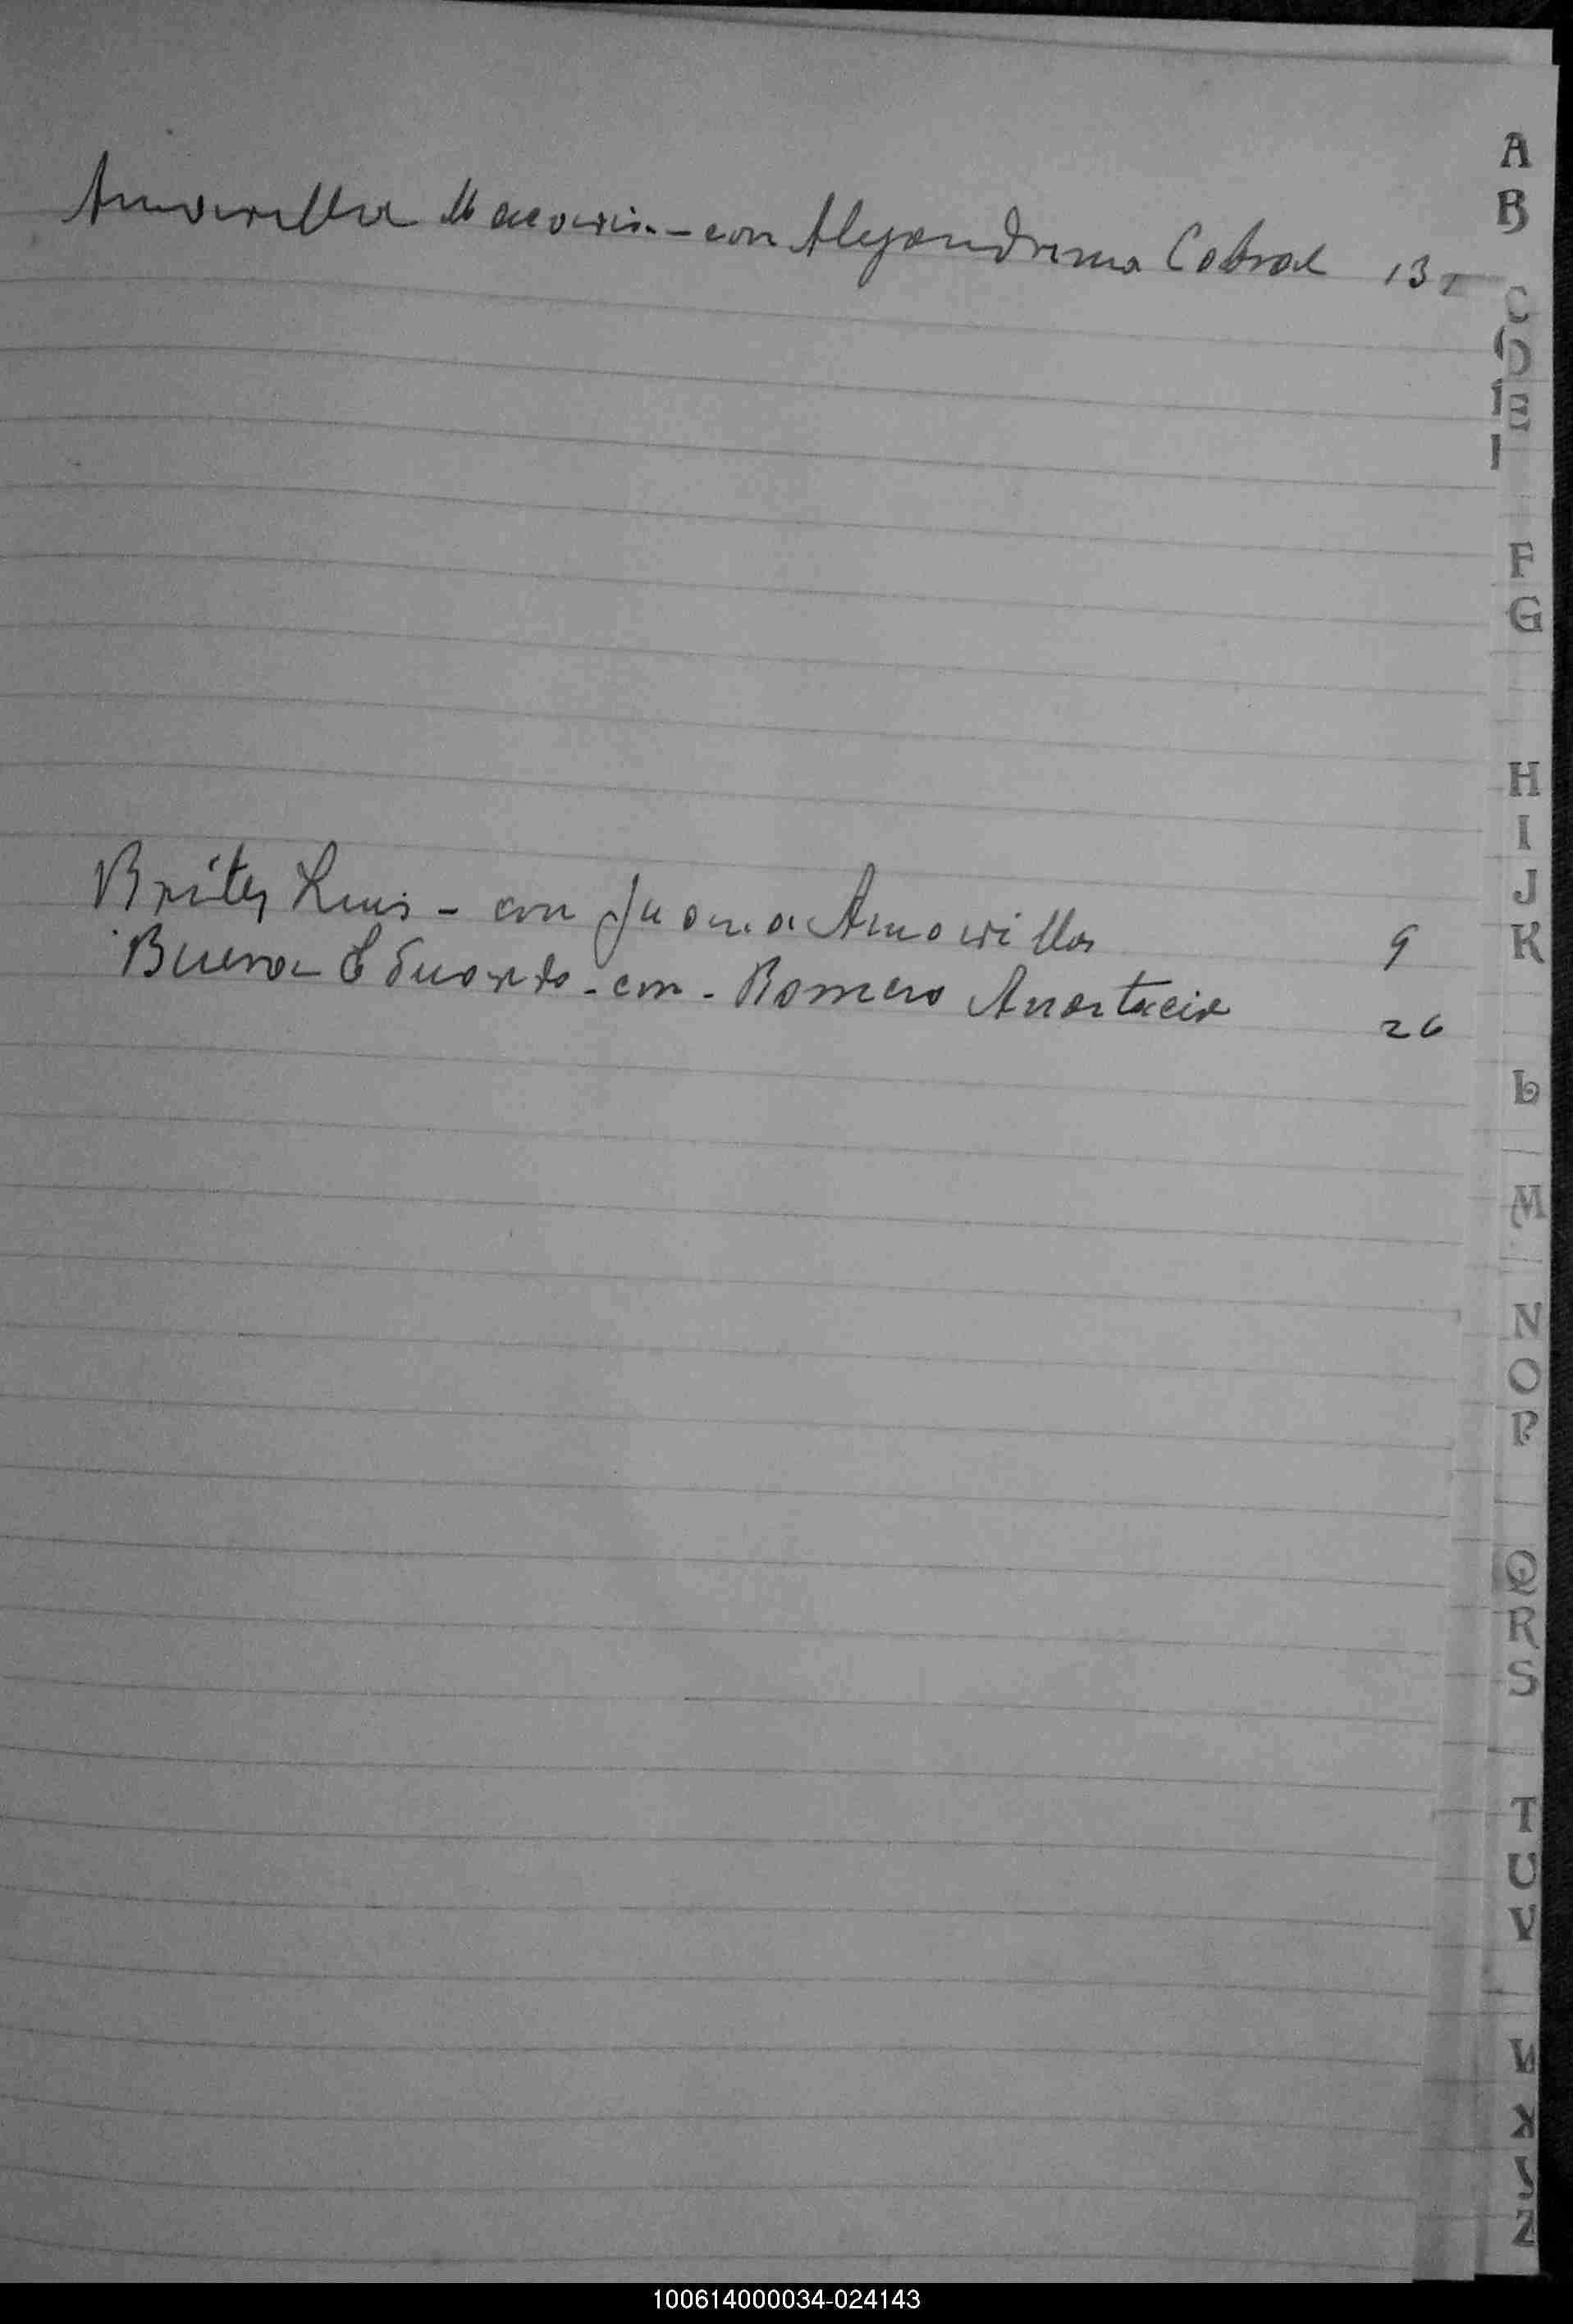 Amarilla Macario. - con Alejandrina Cabral 13
Brites Luis - con Juana Amarilla 9
Buena Eduardo - con - Romero Anastacia 26
A
B
C
D
E
F
G
H
I
J
K
L
M
N
O
P
Q
R
S
T
U
V
X
Z
100614000034-024143